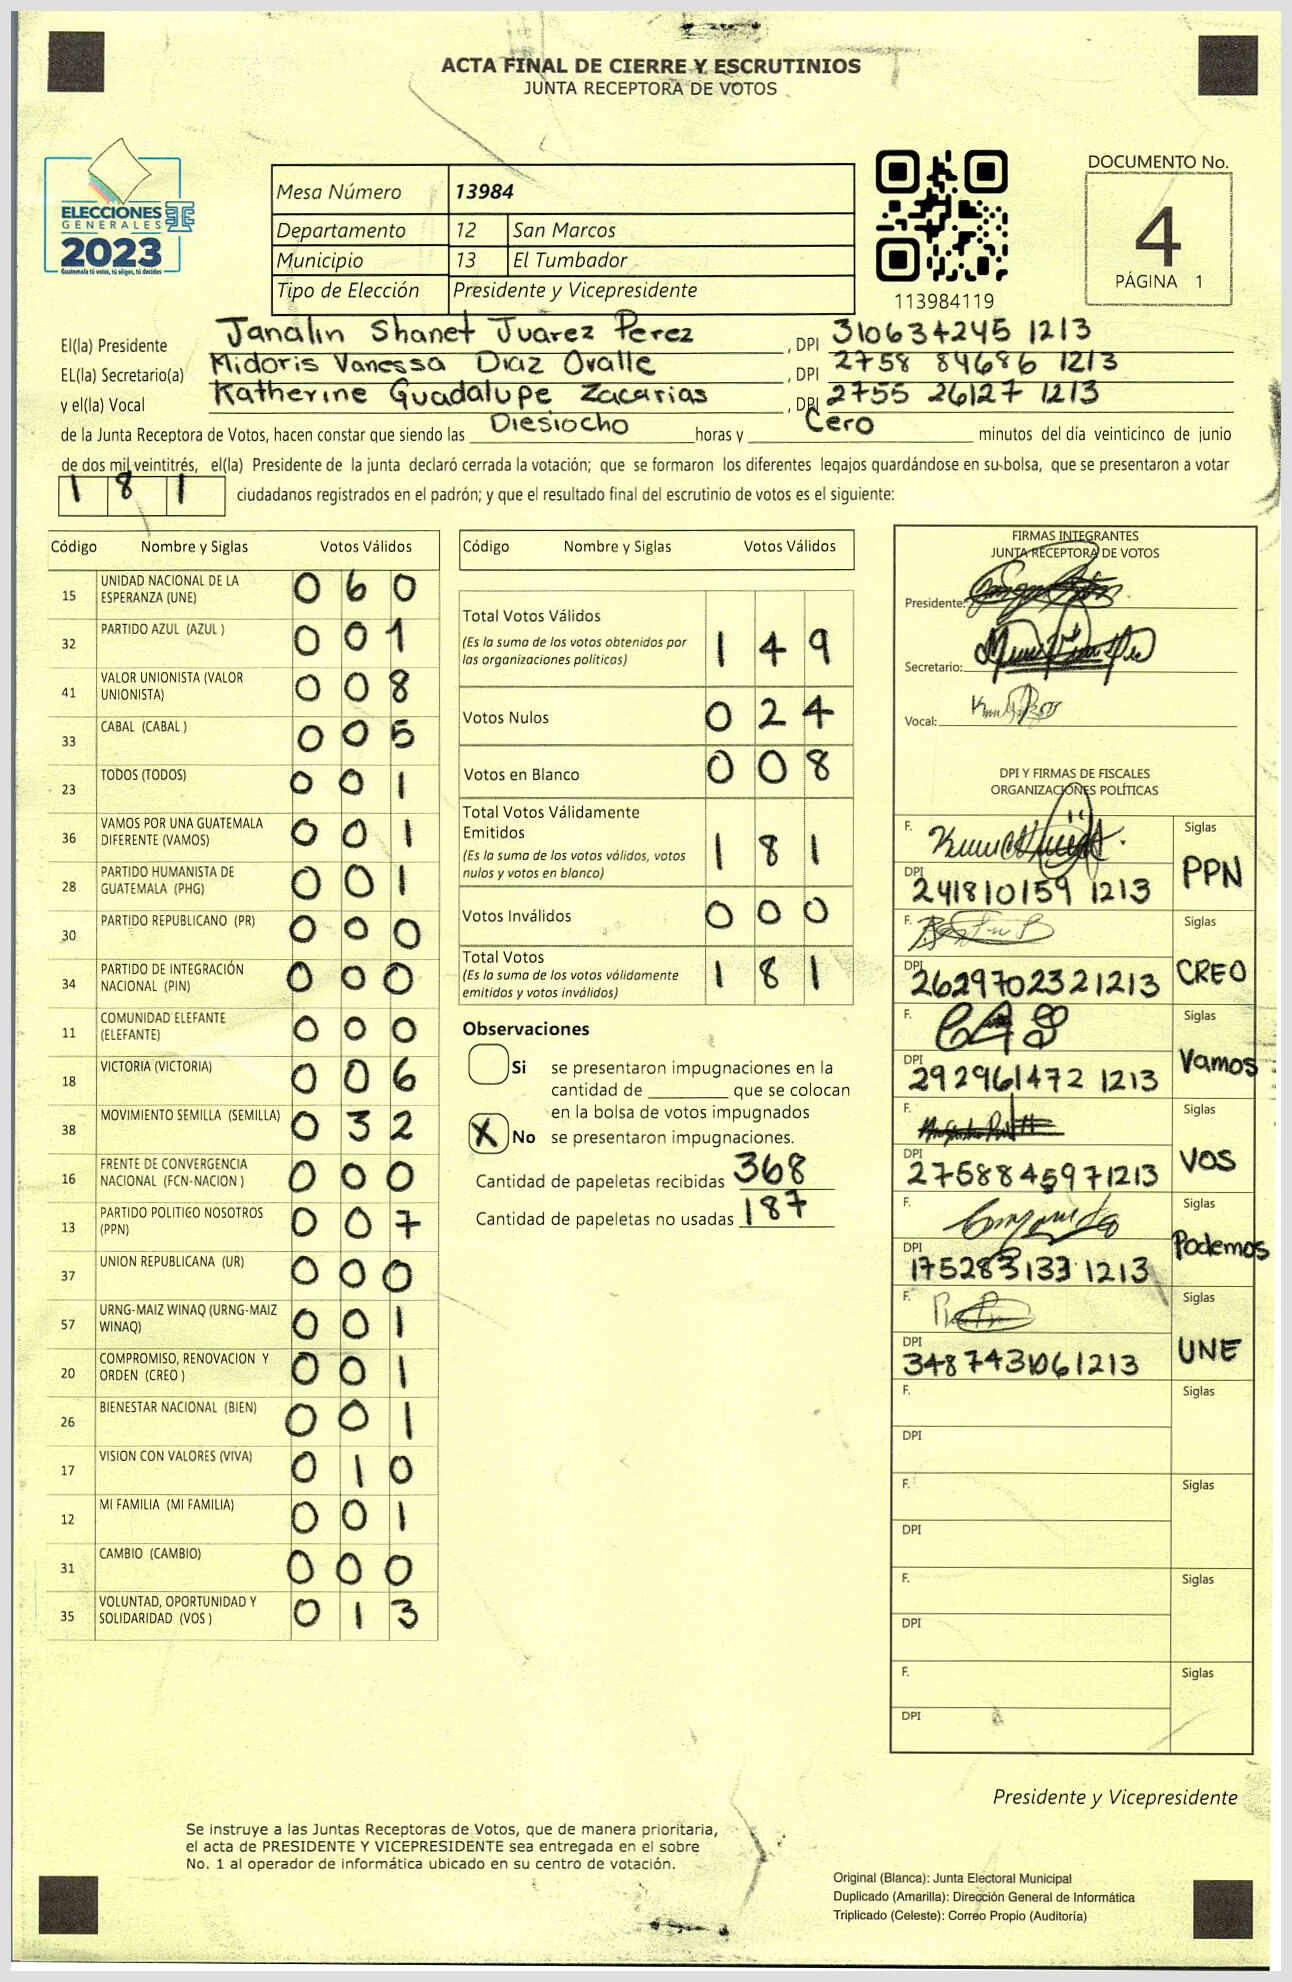 ACTA FINAL DE CIERRE Y ESCRUTINIOS
JUNTA RECEPTORA DE VOTOS
ELECCIONES
GENERALES
2023
Guatemala tú votas, tú eliges, tú decides
Mesa Número 13984
Departamento 12 San Marcos
Municipio 13 El Tumbador
Tipo de Elección Presidente y Vicepresidente
113984119
DOCUMENTO No.
4
PÁGINA 1
El(la) Presidente Janalin Shanet Juarez Perez, DPI 310634245 1213
EL(la) Secretario(a) Midoris Vanessa Diaz Ovalle, DPI 2758 84686 1213
y el(la) Vocal Katherine Guadalupe Zacarias, DPI 2755 26127 1213
de la Junta Receptora de Votos, hacen constar que siendo las Diesiocho horas y Cero minutos del día veinticinco de junio
de dos mil veintitrés, el(la) Presidente de la junta declaró cerrada la votación; que se formaron los diferentes legajos guardándose en su bolsa, que se presentaron a votar
1 8 1 ciudadanos registrados en el padrón; y que el resultado final del escrutinio de votos es el siguiente:
Código Nombre y Siglas Votos Válidos
15 UNIDAD NACIONAL DE LA ESPERANZA (UNE) 0 6 0
32 PARTIDO AZUL (AZUL ) 0 0 1
41 VALOR UNIONISTA (VALOR UNIONISTA) 0 0 8
33 CABAL (CABAL ) 0 0 5
23 TODOS (TODOS) 0 0 1
36 VAMOS POR UNA GUATEMALA DIFERENTE (VAMOS) 0 0 1
28 PARTIDO HUMANISTA DE GUATEMALA (PHG) 0 0 1
30 PARTIDO REPUBLICANO (PR) 0 0 0
34 PARTIDO DE INTEGRACIÓN NACIONAL (PIN) 0 0 0
11 COMUNIDAD ELEFANTE (ELEFANTE) 0 0 0
18 VICTORIA (VICTORIA) 0 0 6
38 MOVIMIENTO SEMILLA (SEMILLA) 0 3 2
16 FRENTE DE CONVERGENCIA NACIONAL (FCN-NACION ) 0 0 0
13 PARTIDO POLITICO NOSOTROS (PPN) 0 0 7
37 UNION REPUBLICANA (UR) 0 0 0
57 URNG-MAIZ WINAQ (URNG-MAIZ WINAQ) 0 0 1
20 COMPROMISO, RENOVACION Y ORDEN (CREO ) 0 0 1
26 BIENESTAR NACIONAL (BIEN) 0 0 1
17 VISION CON VALORES (VIVA) 0 1 0
12 MI FAMILIA (MI FAMILIA) 0 0 1
31 CAMBIO (CAMBIO) 0 0 0
35 VOLUNTAD, OPORTUNIDAD Y SOLIDARIDAD (VOS ) 0 1 3
Código Nombre y Siglas Votos Válidos
Total Votos Válidos
(Es la suma de los votos obtenidos por
las organizaciones políticas) 1 4 9
Votos Nulos 0 2 4
Votos en Blanco 0 0 8
Total Votos Válidamente
Emitidos
(Es la suma de los votos válidos, votos
nulos y votos en blanco) 1 8 1
Votos Inválidos 0 0 0
Total Votos
(Es la suma de los votos válidamente
emitidos y votos inválidos) 1 8 1
Observaciones
Si se presentaron impugnaciones en la
cantidad de ________ que se colocan
en la bolsa de votos impugnados
X No se presentaron impugnaciones.
Cantidad de papeletas recibidas 368
Cantidad de papeletas no usadas 187
FIRMAS INTEGRANTES
JUNTA RECEPTORA DE VOTOS
Presidente:
Secretario:
Vocal:
DPI Y FIRMAS DE FISCALES
ORGANIZACIONES POLÍTICAS
F. Siglas
DPI 241810159 1213 PPN
F. Siglas
DPI 2629702321213 CREO
F. Siglas
DPI 292961472 1213 Vamos
F. Siglas
DPI 2758845971213 VOS
F. Siglas
DPI 175283133 1213 Podemos
F. Siglas
DPI 3487431061213 UNE
F. Siglas
DPI
F. Siglas
DPI
F. Siglas
DPI
F. Siglas
DPI
Presidente y Vicepresidente
Se instruye a las Juntas Receptoras de Votos, que de manera prioritaria,
el acta de PRESIDENTE Y VICEPRESIDENTE sea entregada en el sobre
No. 1 al operador de informática ubicado en su centro de votación.
Original (Blanca): Junta Electoral Municipal
Duplicado (Amarilla): Dirección General de Informática
Triplicado (Celeste): Correo Propio (Auditoría)